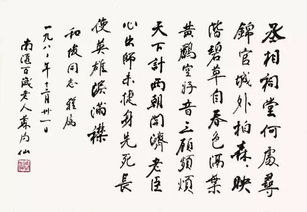 丞相祠堂何處尋
錦官城外柏森々映
階碧草自春色隔葉
黃鸝空好音三顧頻煩
天下計兩朝開濟老臣
心出師未捷身先死長
使英雄淚滿襟
和俊同志雅屬
一九八年三月卅一日
南滙百歲老人蘇局仙